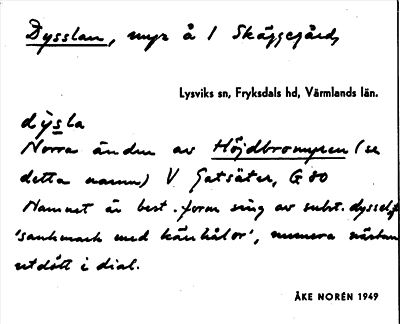 Dysslan, myr å 1 Skäggegård,
Lysviks sn, Fryksdals hd, Värmlands län.
dysla
Norra änden av Höjdbromyren (se
detta namn) V Gatsäter, G 80
Namnet är best. form sing av subst. dyssel, f
'sankmark med kärrhålor', numera nästan
utdött i dial.
ÅKE NORÉN 1949